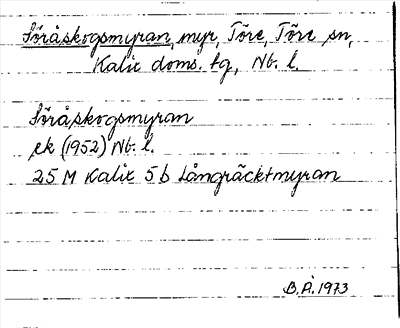 Föråskogsmyran, myr, Töre, Töre sn,
Kalix doms. tg, Nb. l.
Föråskogsmyran
ek (1952) Nb. l.
25 M Kalix 5 b Långräcktmyran
B.Å. 1973